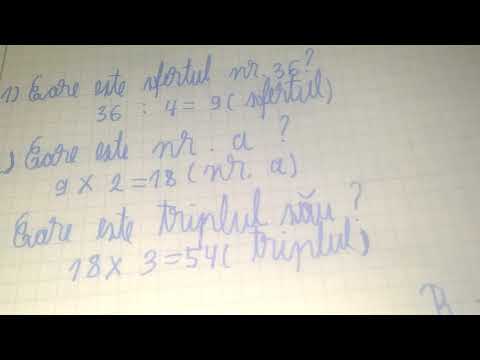 1) Care este sfertul nr. 36?
36 : 4 = 9 (sfertul)
) Care este nr. a ?
9 X 2 = 18 (nr. a)
Care este triplul său ?
18 X 3 = 54 (triplul)
R